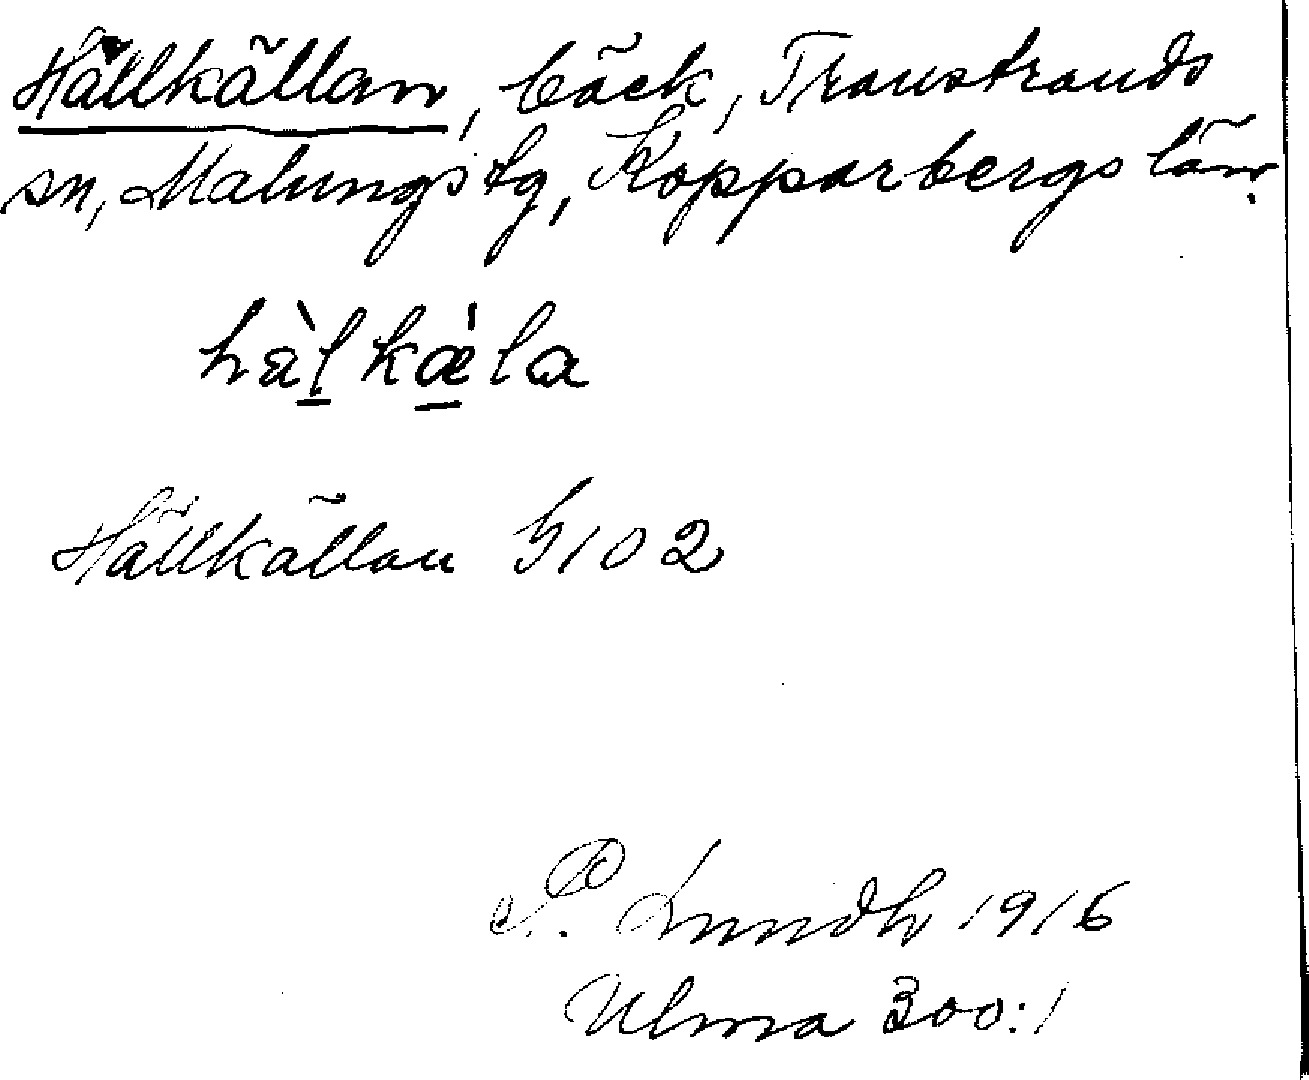 Hällkällan, bäck, Transtrands
sn, Malungs tg, Kopparbergs län.
hàl̠kæ̠̀la
Hällkällan G102
P. Lundh 1916
Ulma 300:1